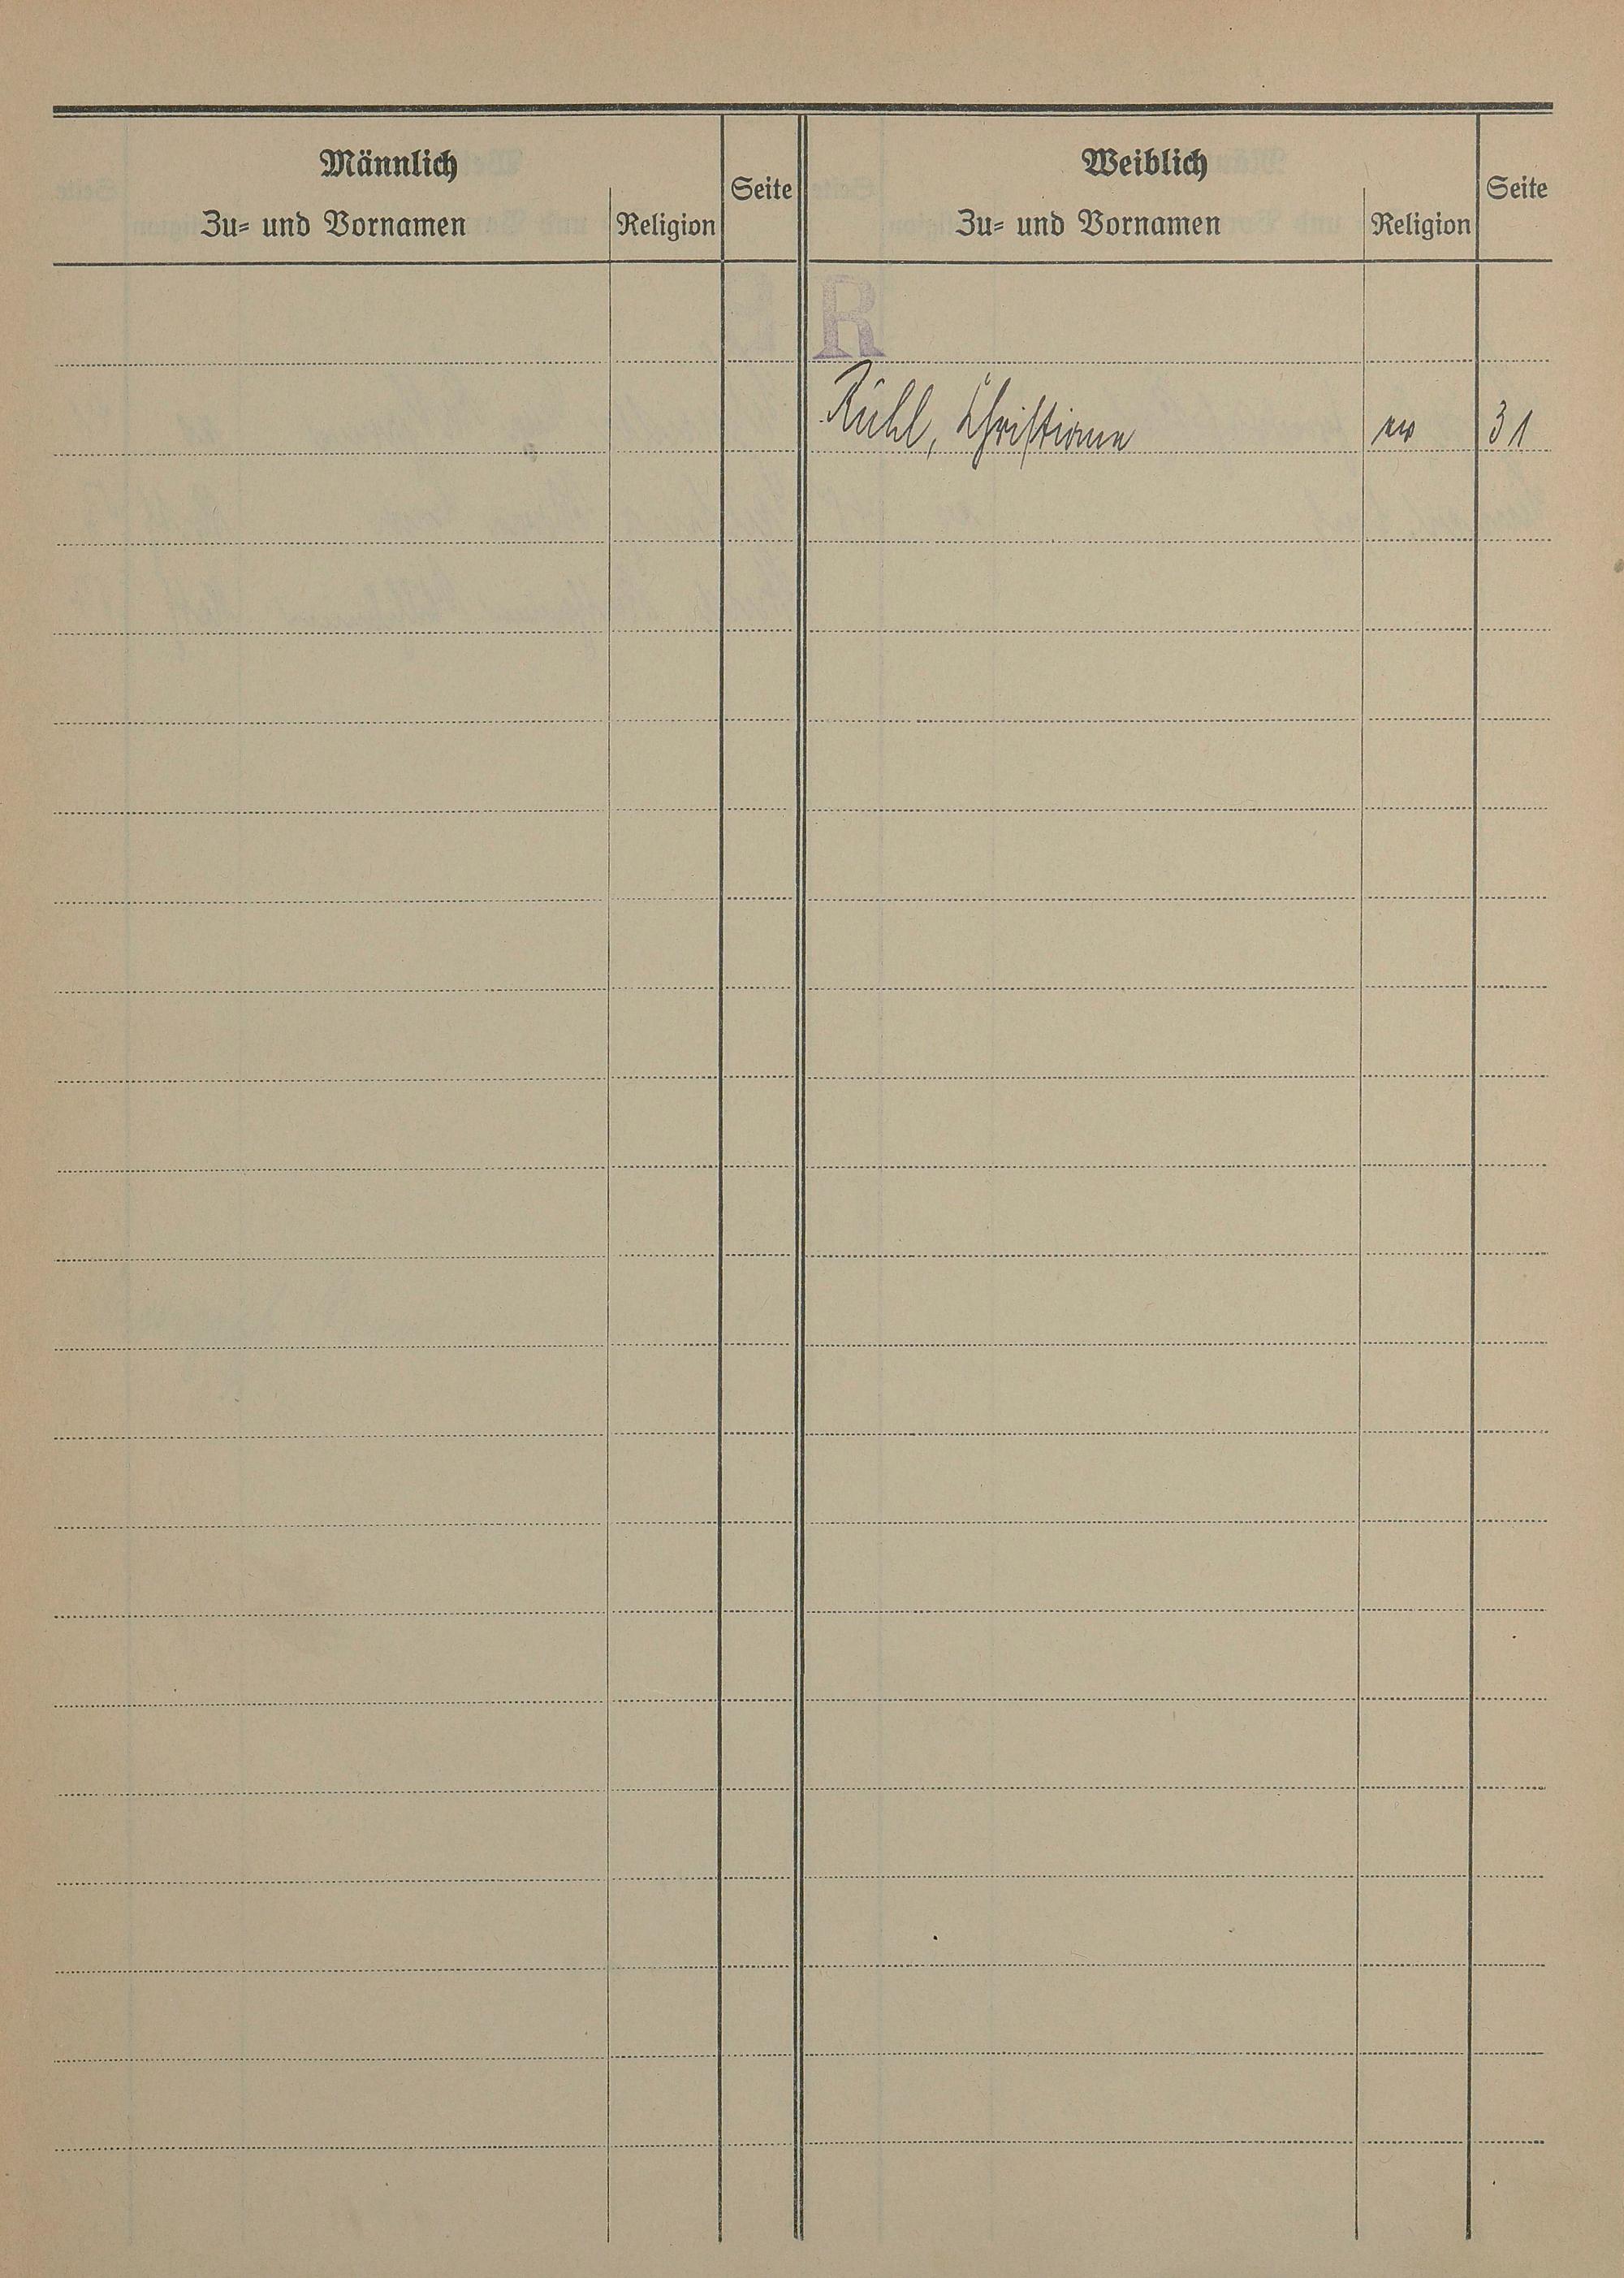 Männlich
Zu- und Vornamen Religion Seite
Weiblich
Zu- und Vornamen Religion Seite
R
Rühl, Christiane ev 31